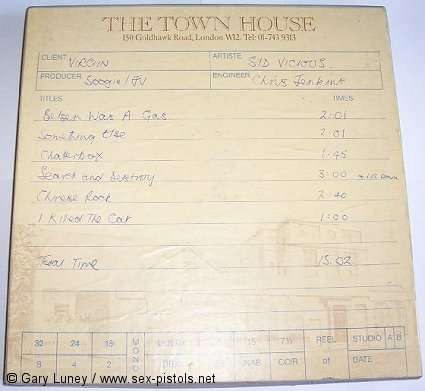 THE TOWN HOUSE
150 Goldhawk Road, London W12. Tel: 01-743 9313
CLIENT VIRGIN ARTISTE SID VICIOUS
PRODUCER Boogie / JV ENGINEER Chris Jenkins
TITLES TIMES
Belsen Was A Gas 2:01
Something Else 2:01
Chaterbox 1:45
Search and Destroy 3:00
Chinese Rock 2:40
I Killed The Cat 1:00
Total Time 15:02
32 24 16 MONO 15 7½ REEL STUDIO A B
8 4 2 NAB CCIR of DATE
© Gary Luney / www.sex-pistols.net